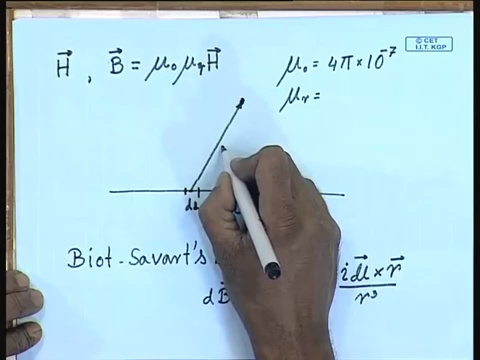 © CET
I.I.T. KGP
H⃗ , B⃗ = μ₀ μᵣ H⃗
μ₀ = 4π × 10⁻⁷
μᵣ =
Biot-Savart's
dB
i dl⃗ × r⃗
r³